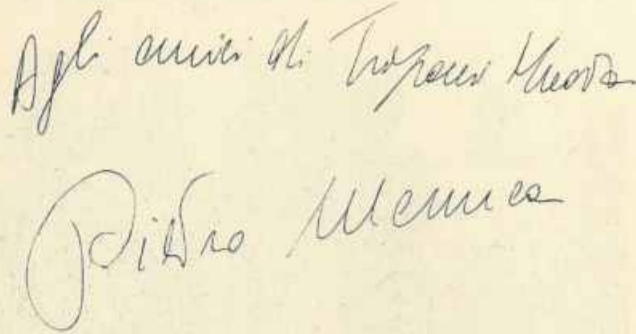 Agli amici di Trapani Nuova
Pietro Mennea